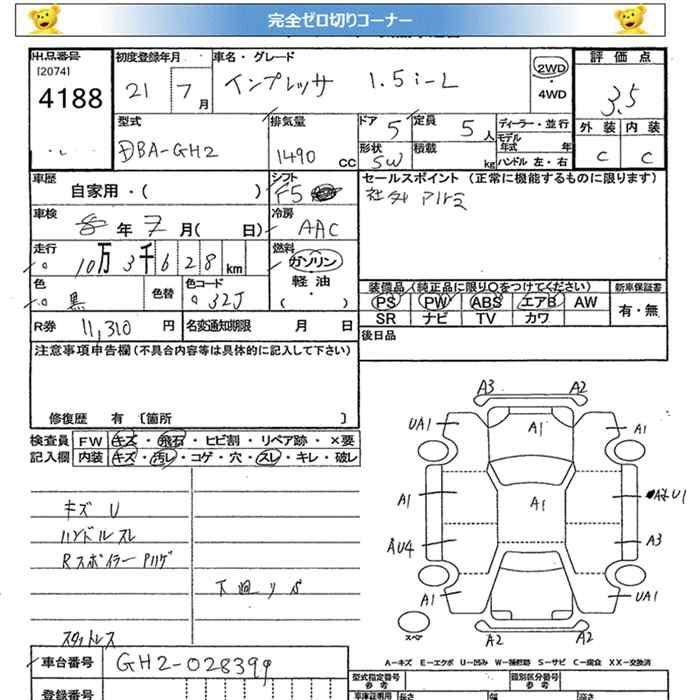 完全ゼロ切りコーナー
出品番号
[2074]
4188
初度登録年月
21 7月
車名・グレード
インプレッサ 1.5i-L
2WD
・
4WD
評価点
3.5
外装 内装
C C
型式
DBA-GH2
排気量
1490 CC
ドア 5
定員 5人
形状 SW
積載 kg
ディーラー・並行
モデル年式 年
ハンドル 左・右
車歴
自家用・( )
シフト
F5
セールスポイント (正常に機能するものに限ります)
社外 アルミ
車検
年 7月( 日)
冷房
AAC
走行
10万3千628km
燃料
ガソリン
軽油
・
( )
色
黒
色替
色コード
32J
装備品 (純正品に限り○をつけてください)
PS PW ABS エアB AW
SR ナビ TV カワ
新車保証書
有・無
R券 11,310 円
名変通知期限 月 日
後日品
注意事項申告欄 (不具合内容等は具体的に記入して下さい)
修復歴 有 [箇所 ]
検査員記入欄
FW キズ・飛石・ヒビ割・リペア跡・×要
内装 キズ・汚レ・コゲ・穴・スレ・キレ・破レ
キズ U
ハンドルスレ
Rスポイラー Pハゲ
下廻りS
スタットレス
A3 A2
UA1 A1 A1
A1 A1 U1
AU4 A3
A1 UA1
A2 A2
スペア
A-キズ E-エクボ U-凹み W-補修跡 S-サビ C-腐食 XX-交換済
車台番号 GH2-028399
型式指定番号 参考
類別区分番号 参考
登録番号
車庫証明用 参考 長さ 幅 高さ